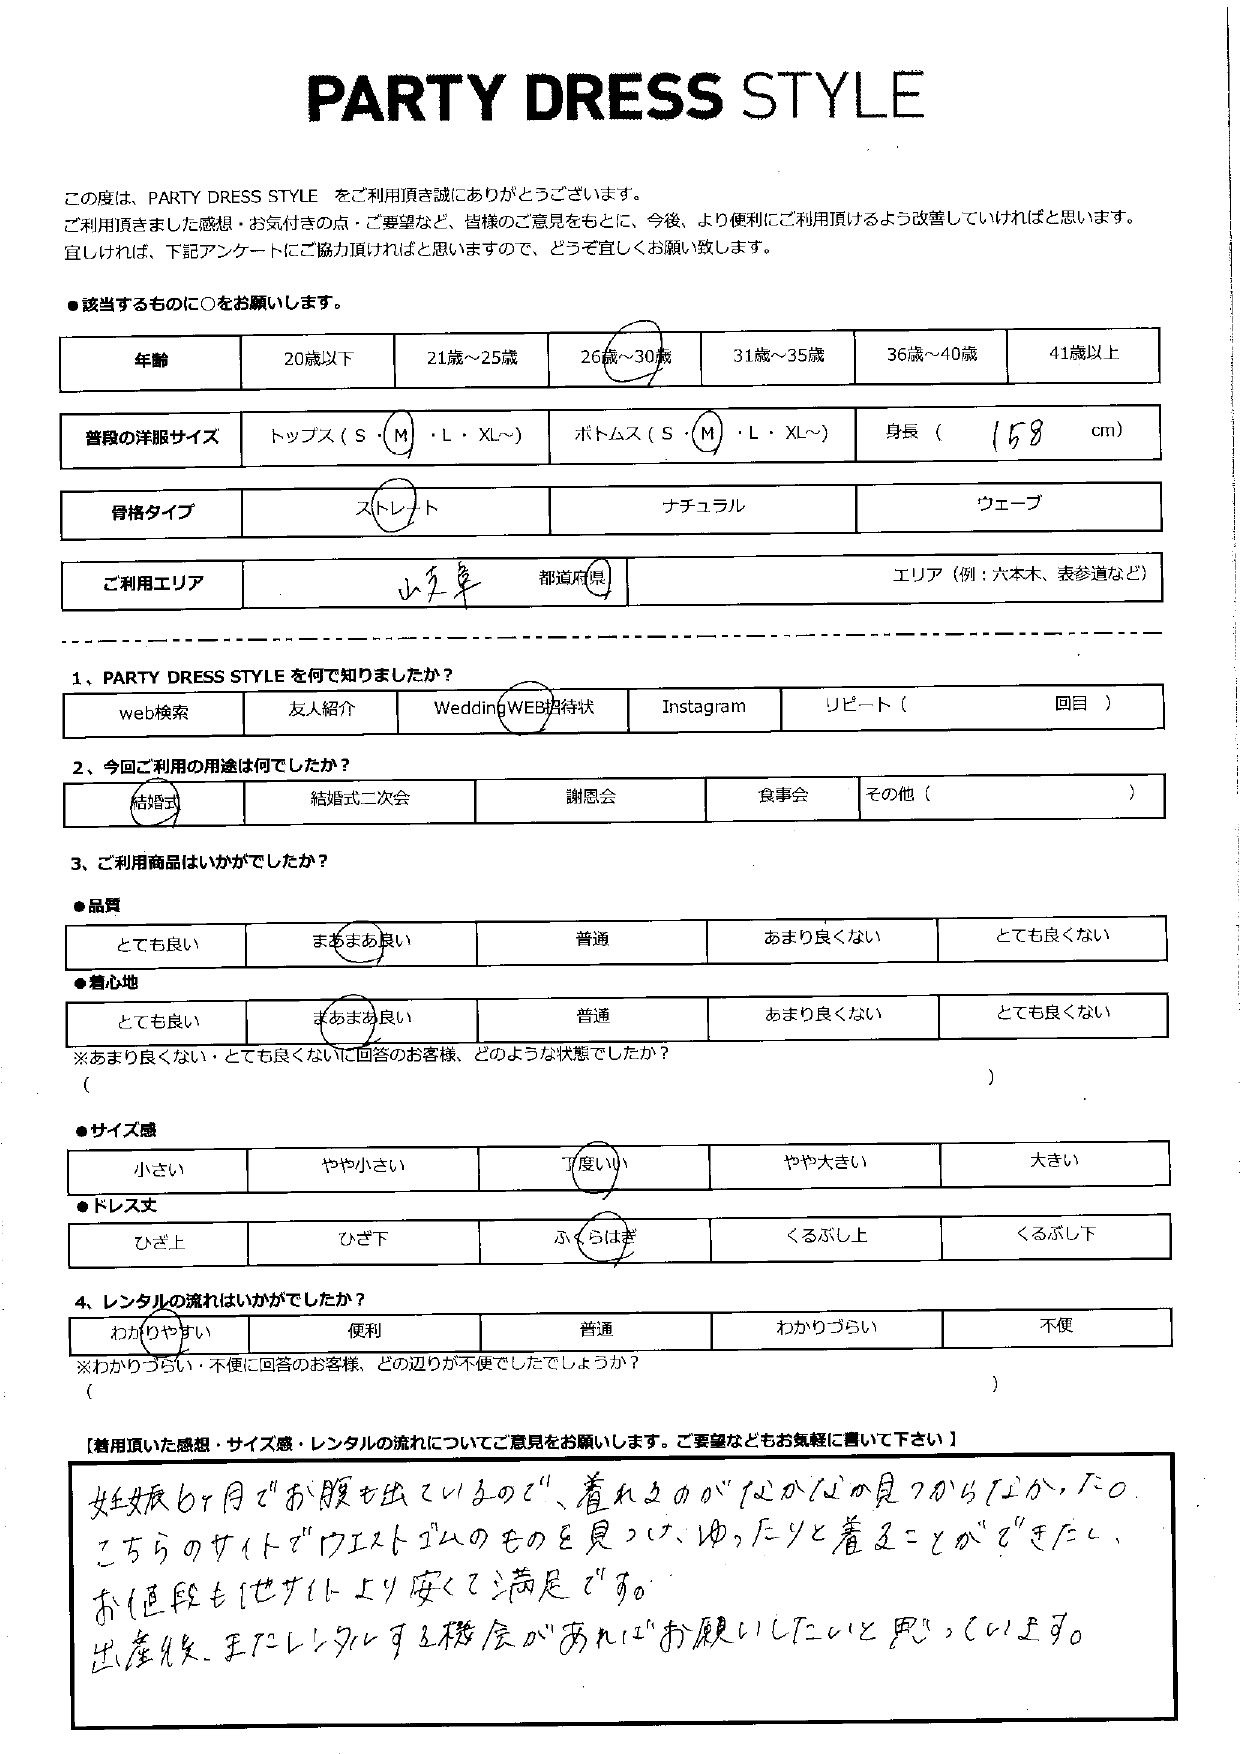 PARTY DRESS STYLE
この度は、PARTY DRESS STYLE をご利用頂き誠にありがとうございます。
ご利用頂きました感想・お気付きの点・ご要望など、皆様のご意見をもとに、今後、より便利にご利用頂けるよう改善していければと思います。
宜しければ、下記アンケートにご協力頂ければと思いますので、どうぞ宜しくお願い致します。
●該当するものに○をお願いします。
年齢 20歳以下 21歳～25歳 26歳～30歳 31歳～35歳 36歳～40歳 41歳以上
普段の洋服サイズ トップス ( S ・ M ・L ・ XL～) ボトムス ( S ・ M ・L ・ XL～) 身長 ( 158 cm)
骨格タイプ ストレート ナチュラル ウェーブ
ご利用エリア 岐阜 都道府県 エリア（例：六本木、表参道など）
1、PARTY DRESS STYLE を何で知りましたか？
web検索 友人紹介 WeddingWEB招待状 Instagram リピート（ 回目 ）
2、今回ご利用の用途は何でしたか？
結婚式 結婚式二次会 謝恩会 食事会 その他（ ）
3、ご利用商品はいかがでしたか？
●品質
とても良い まあまあ良い 普通 あまり良くない とても良くない
●着心地
とても良い まあまあ良い 普通 あまり良くない とても良くない
※あまり良くない・とても良くないに回答のお客様、どのような状態でしたか？
（ ）
●サイズ感
小さい やや小さい 丁度いい やや大きい 大きい
●ドレス丈
ひざ上 ひざ下 ふくらはぎ くるぶし上 くるぶし下
4、レンタルの流れはいかがでしたか？
わかりやすい 便利 普通 わかりづらい 不便
※わかりづらい・不便に回答のお客様、どの辺りが不便でしたでしょうか？
（ ）
【着用頂いた感想・サイズ感・レンタルの流れについてご意見をお願いします。ご要望などもお気軽に書いて下さい】
妊娠6ヶ月でお腹も出ているので、着れるのがなかなか見つからなかった。
こちらのサイトでウエストゴムのものを見つけ、ゆったりと着ることができたし、
お値段も他サイトより安くて満足です。
出産後、またレンタルする機会があればお願いしたいと思っています。